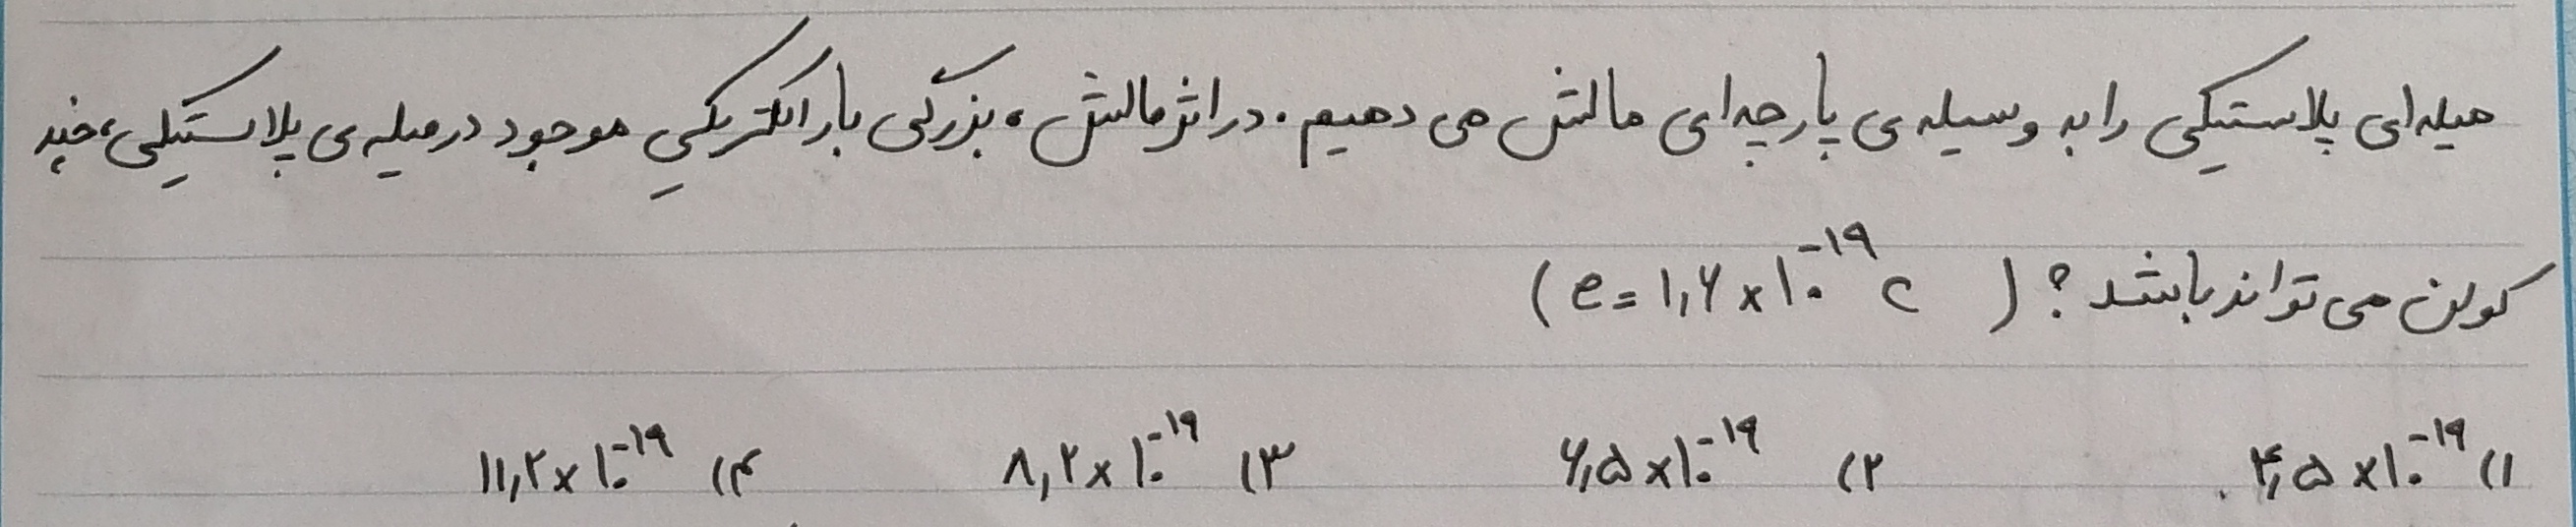 میله‌ای پلاستیکی را به وسیله‌ی پارچه‌ای مالش می دهیم. در اثر مالش، بزرگی بار الکتریکی موجود در میله‌ی پلاستیکی، چند
کولن می تواند باشد؟ (e = ۱,۶ × ۱۰^-۱۹ C)
۱) ۴,۵ × ۱۰^-۱۹ ۲) ۶,۵ × ۱۰^-۱۹ ۳) ۸,۲ × ۱۰^-۱۹ ۴) ۱۱,۲ × ۱۰^-۱۹